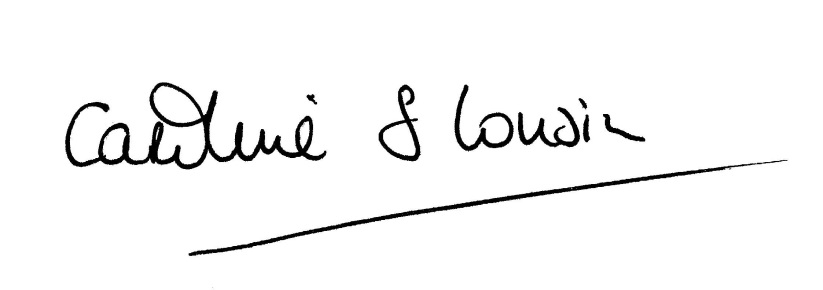 Caroline S Lousin